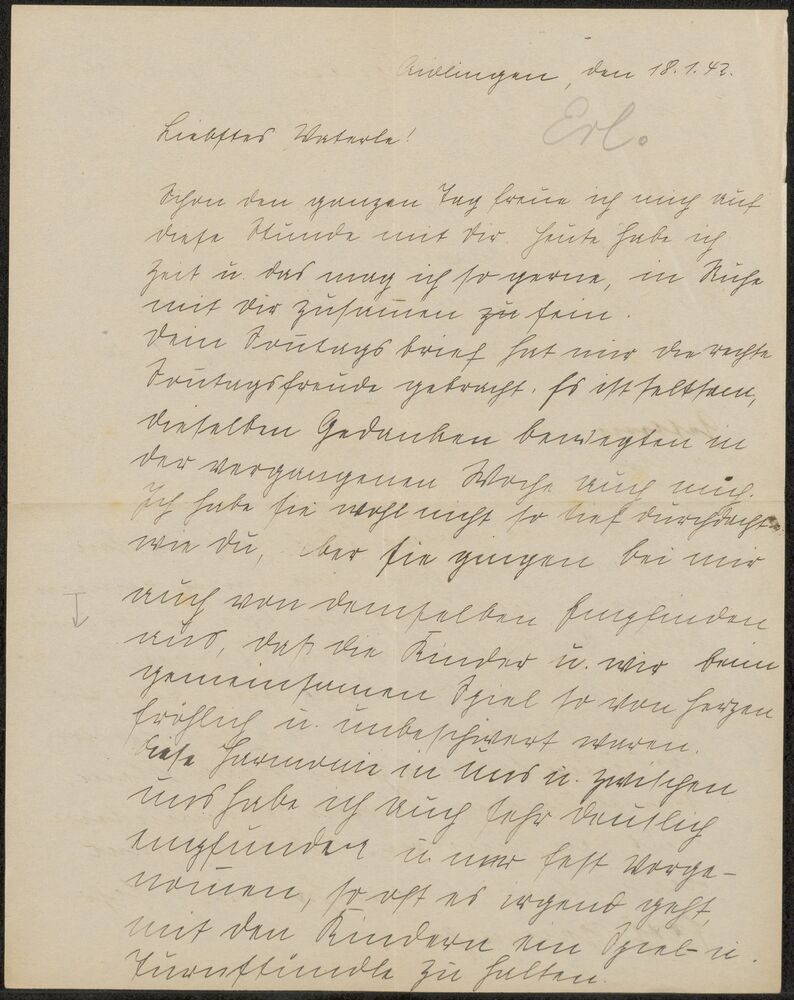 Aidlingen, den 18.1.42.
Erl.
Liebstes Vaterle!
Schon den ganzen Tag freue ich mich auf
diese Stunde mit Dir. Heute habe ich
Zeit u. das mag ich so gerne, in Ruhe
mit Dir zusammen zu sein.
Dein Sontagsbrief hat mir die rechte
Sontagsfreude gebracht. Es ist seltsam,
dieselben Gedanken bewegten in
der vergangenen Woche auch mich.
Ich habe sie wohl nicht so tief durchdacht
wie Du, aber sie gingen bei mir
auch von demselben Empfinden
aus, daß die Kinder u. wir beim
gemeinsamen Spiel so von Herzen
fröhlich u. unbeschwert waren.
Diese Harmonie in uns u. zwischen
uns habe ich auch sehr deutlich
empfunden u. mir fest vorge-
nommen, so oft es irgend geht,
mit den Kindern ein Spiel- u.
Turnstündle zu halten.